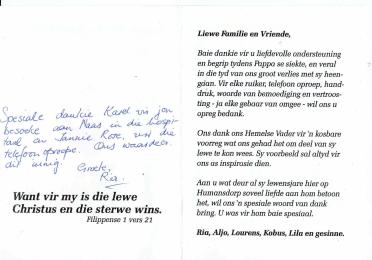 Spesiale dankie Karel vir jou
besoeke aan Naas in die hospi-
taal en Sannie Rose, vir die
telefoon oproepe. Ons waardeer
dit innig.
Groete,
Ria.
Want vir my is die lewe
Christus en die sterwe wins.
Filippense 1 vers 21
Liewe Familie en Vriende,
Baie dankie vir u liefdevolle ondersteuning
en begrip tydens Pappa se siekte, en veral
in die tyd van ons groot verlies met sy heen-
gaan. Vir elke ruiker, telefoon oproep, hand-
druk, woorde van bemoediging en vertroos-
ting - ja elke gebaar van omgee - wil ons u
opreg bedank.
Ons dank ons Hemelse Vader vir 'n kosbare
voorreg wat ons gehad het om deel van sy
lewe te kon wees. Sy voorbeeld sal altyd vir
ons as inspirasie dien.
Aan u wat deur al sy lewensjare hier op
Humansdorp soveel liefde aan hom betoon
het, wil ons 'n spesiale woord van dank
bring. U was vir hom baie spesiaal.
Ria, Aljo, Lourens, Kobus, Lila en gesinne.